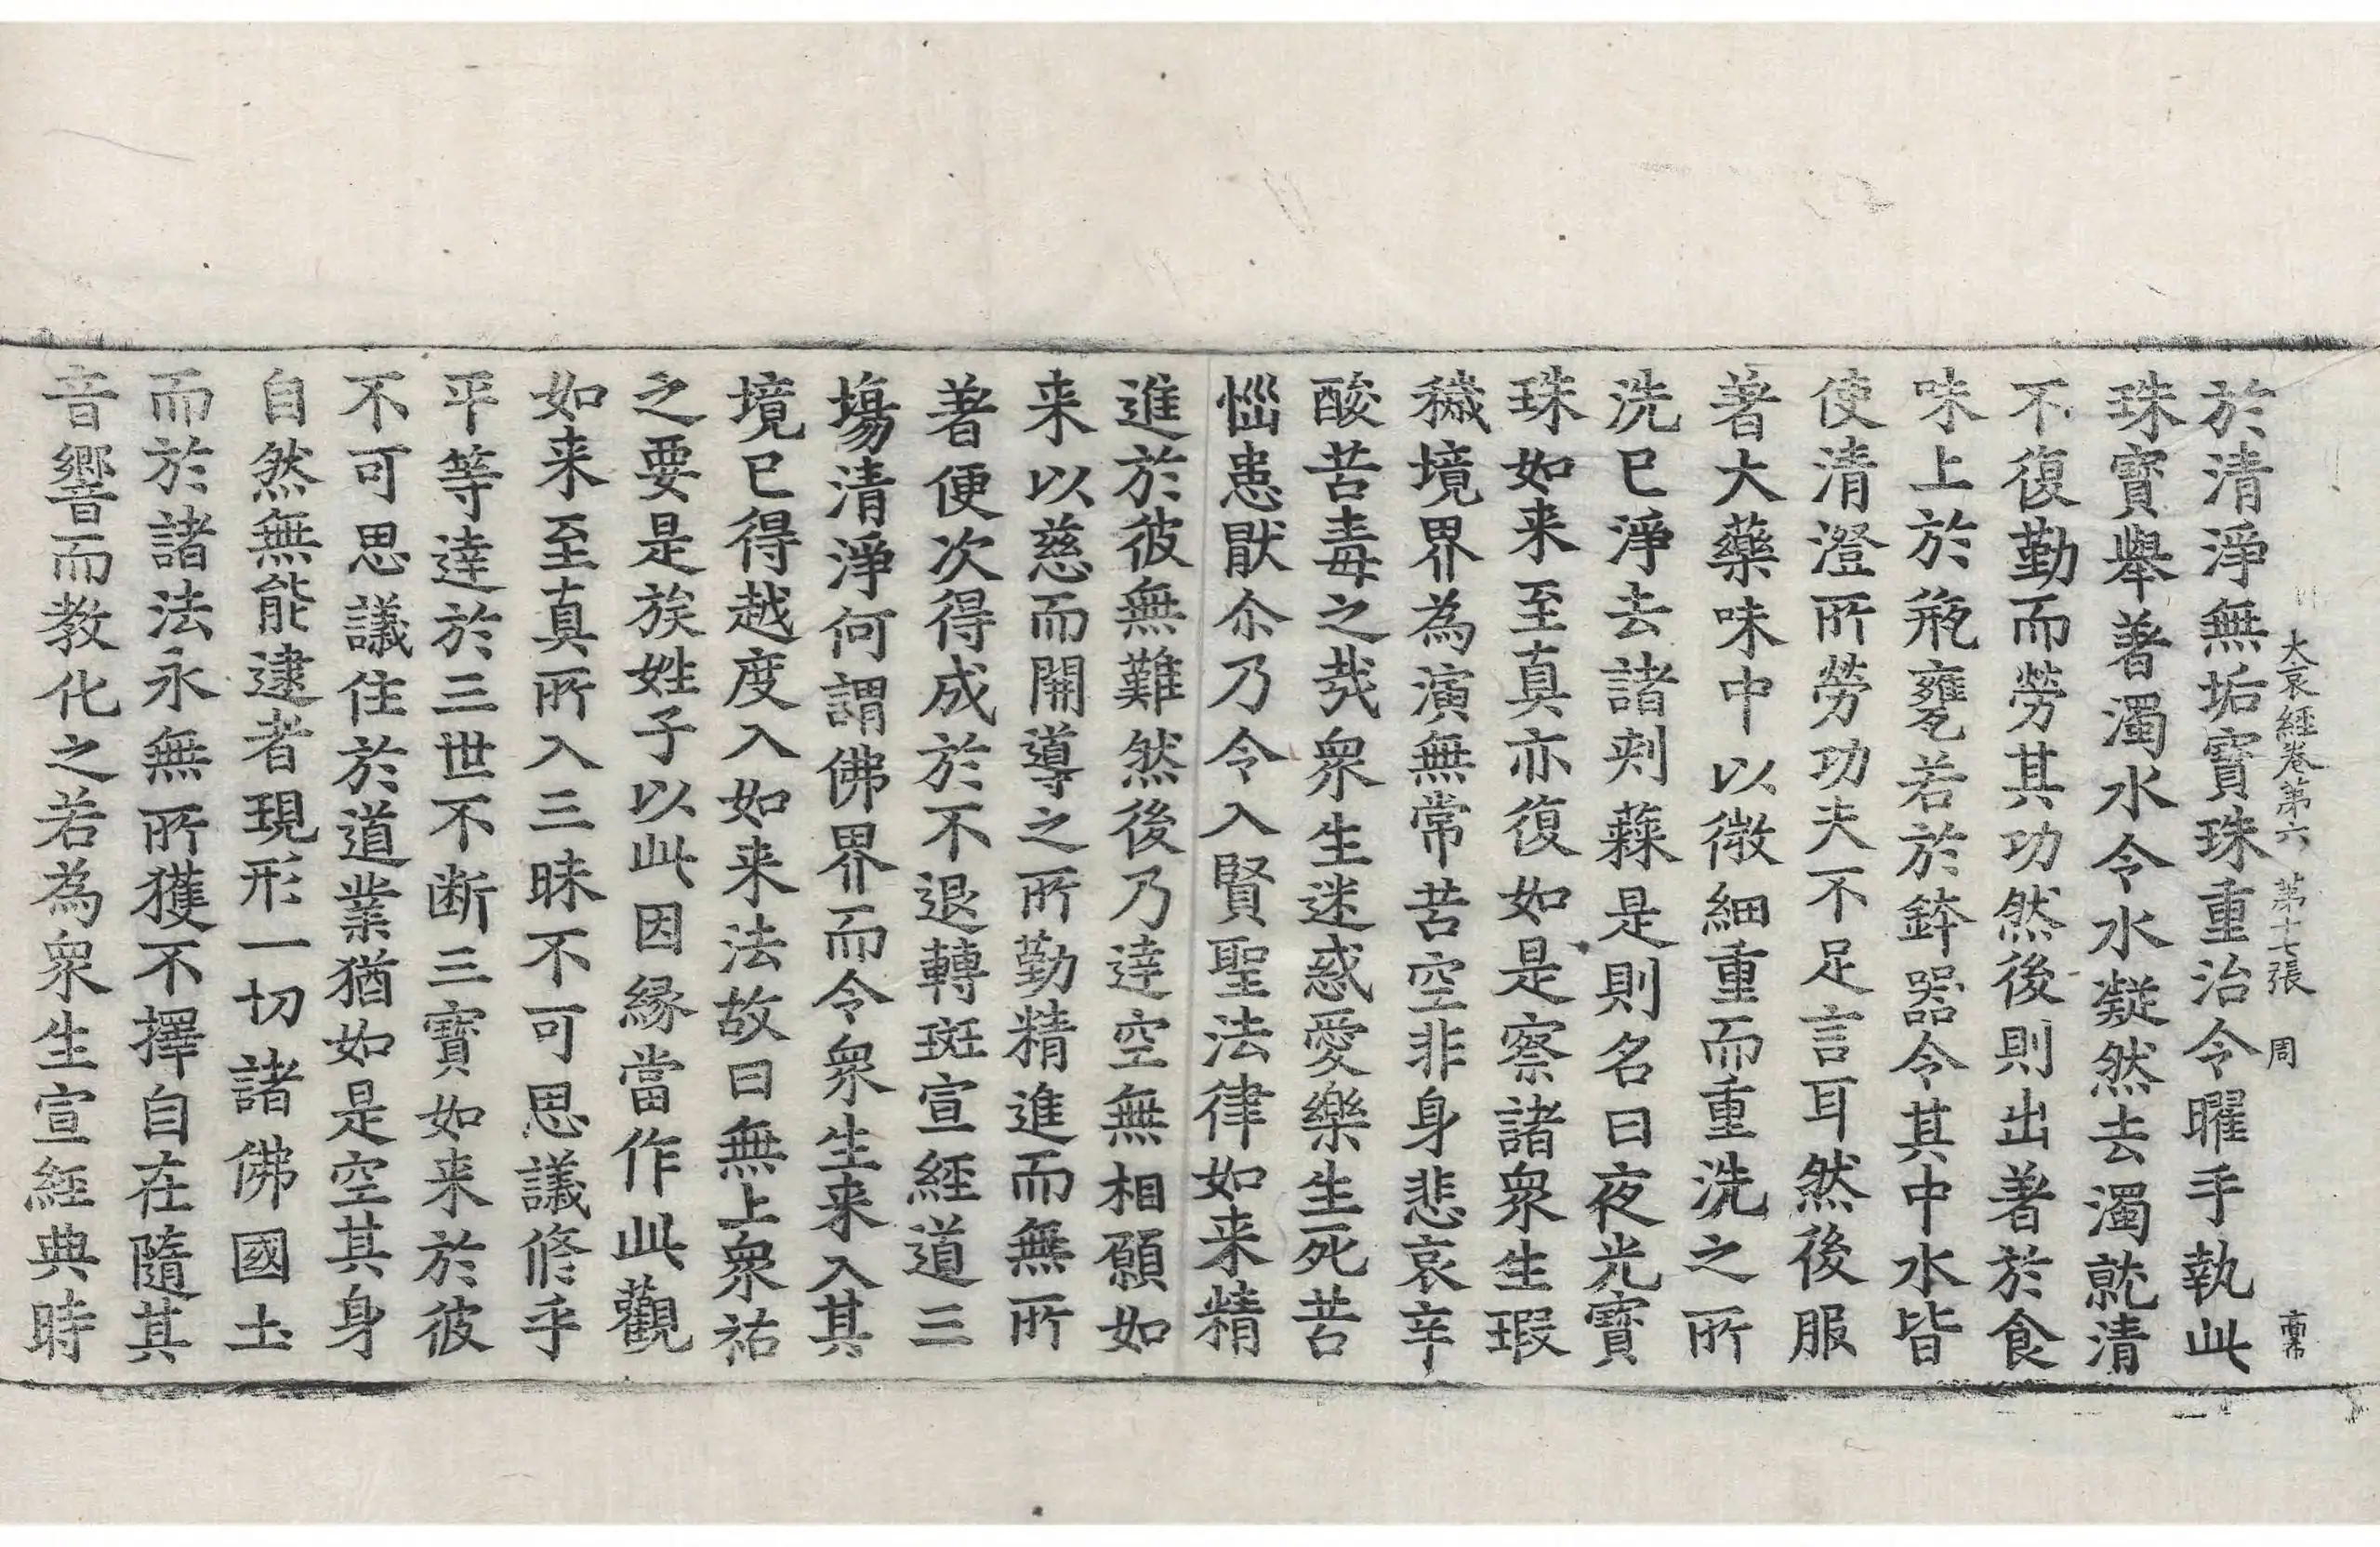 大哀經卷第六 第十七張 周
於清淨無垢寶珠重治令曜手執此
珠寶舉著濁水令水凝然去濁就清
不復勤而勞其功然後則出著於食
味上於瓶甕若於鉢器令其中水皆
使清澄所勞功夫不足言耳然後服
著大藥味中以微細重而重洗之所
洗已淨去諸刾蕀是則名曰夜光寶
珠如来至真亦復如是察諸衆生瑕
穢境界為演無常苦空非身悲哀辛
酸苦毒之㢤衆生迷惑愛樂生死苦
惱患厭尒乃令入賢聖法律如来精
進於彼無難然後乃達空無相願如
来以慈而開導之所勤精進而無所
著便次得成於不退轉斑宣經道三
塲清淨何謂佛界而令衆生来入其
境已得越度入如来法故曰無上衆祐
之要是族姓子以此因縁當作此觀
如来至真所入三昧不可思議修乎
平等達於三世不断三寶如来於彼
不可思議住於道業猶如是空其身
自然無能逮者現形一切諸佛國土
而於諸法永無所獲不擇自在隨其
音響而教化之若為衆生宣經典時